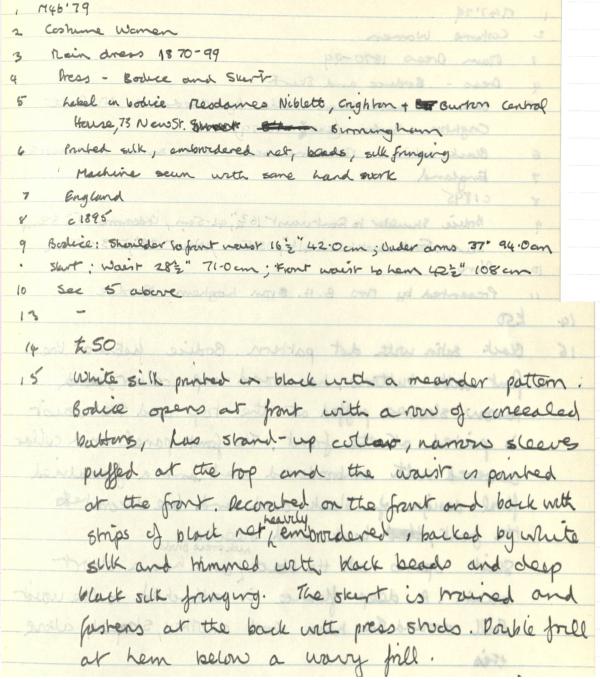 1 M46'79
2 Costume Women
3 Main dress 1870-99
4 Dress - Bodice and Skirt
5 Label in bodice Mesdames Niblett, Crighton + Burton Central
House, 73 New St. Birmingham
6 Printed silk, embroidered net, beads, silk fringing
Machine sewn with some hand work
7 England
8 c1895
9 Bodice: Shoulder to front waist 16½" 42.0cm; Under arms 37" 94.0cm
• Skirt: Waist 28½" 71.0cm; Front waist to hem 42½" 108cm
10 See 5 above
13 -
14 £50
15 White silk printed in black with a meander pattern.
Bodice opens at front with a row of concealed
buttons, has stand-up collar, narrow sleeves
puffed at the top and the waist is pointed
at the front. Decorated on the front and back with
strips of black net, heavily embroidered, backed by white
silk and trimmed with black beads and deep
black silk fringing. The skirt is trained and
fastens at the back with press studs. Double frill
at hem below a wavy frill.